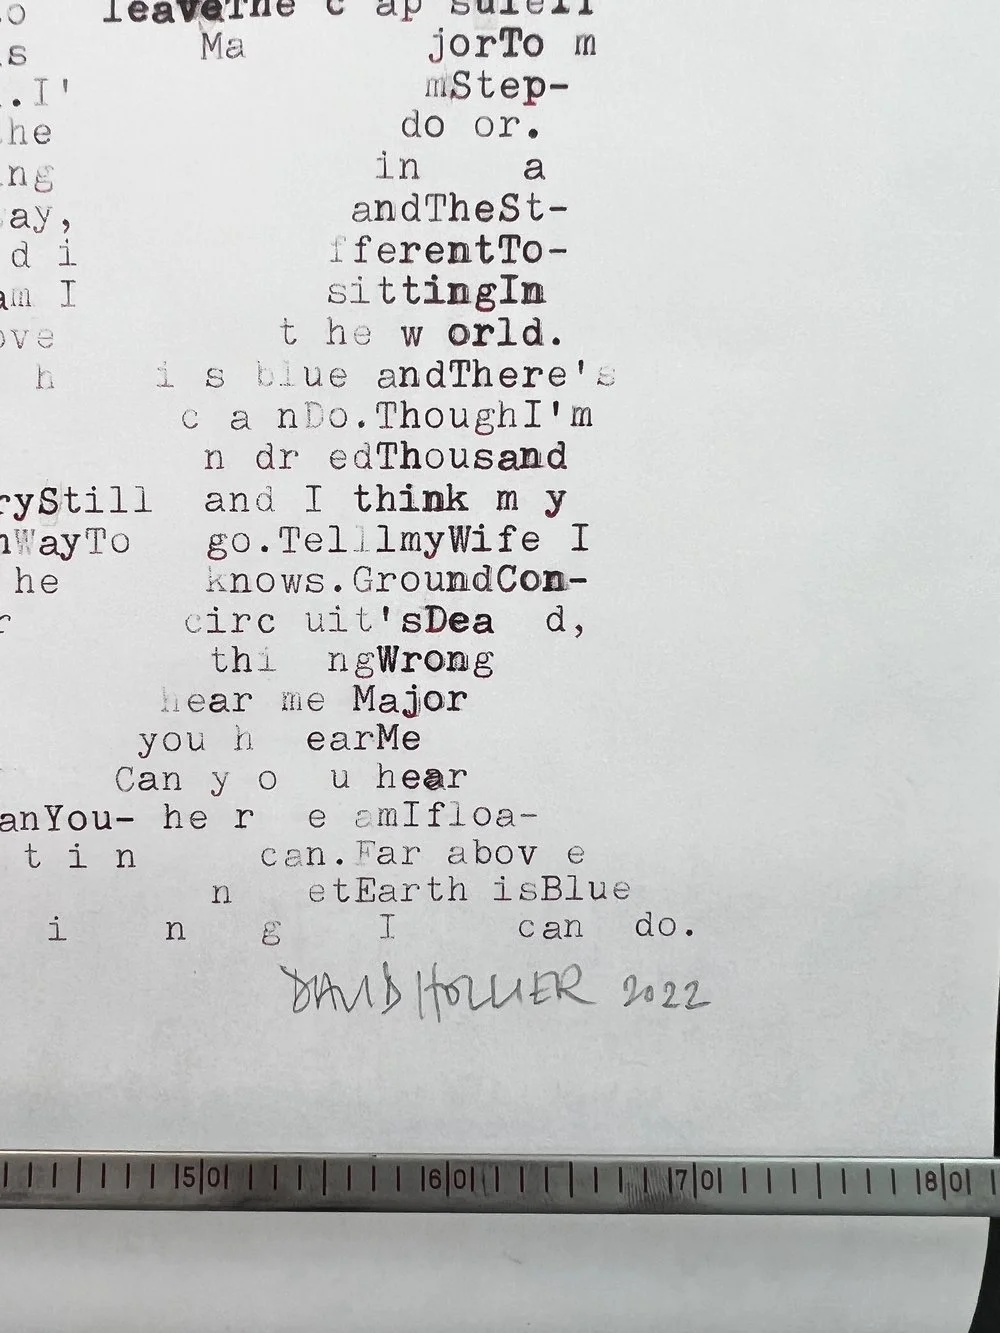 o leaveThe c ap suleIf
s Ma jorTo m
.I' mStep-
he do or.
ng in a
ay, andTheSt-
d i fferentTo-
am I sittingIn
ove t he w orld.
h i s blue andThere's
c a nDo.ThoughI'm
n dr edThousand
ryStill and I think m y
WayTo go.TelllmyWife I
he knows.GroundCon-
r circ uit'sDea d,
thi ngWrong
hear me Major
you h earMe
Can y o u hear
anYou- he r e amIfloa-
t i n can.Far abov e
n etEarth isBlue
i n g I can do.
DAVID HOLLIER 2022
50 60 70 80